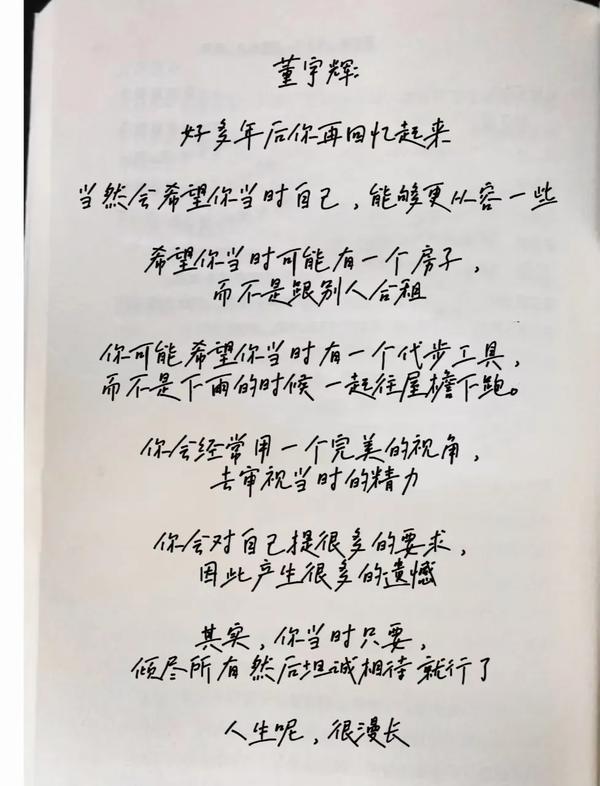 董宇辉:
好多年后你再回忆起来
当然会希望你当时自己，能够更从容一些
希望你当时可能有一个房子，
而不是跟别人合租
你可能希望你当时有一个代步工具，
而不是下雨的时候 一起往屋檐下跑。
你会经常用一个完美的视角，
去审视当时的精力
你会对自己提很多的要求，
因此产生很多的遗憾
其实，你当时只要，
倾尽所有然后坦诚相待就行了
人生呢，很漫长